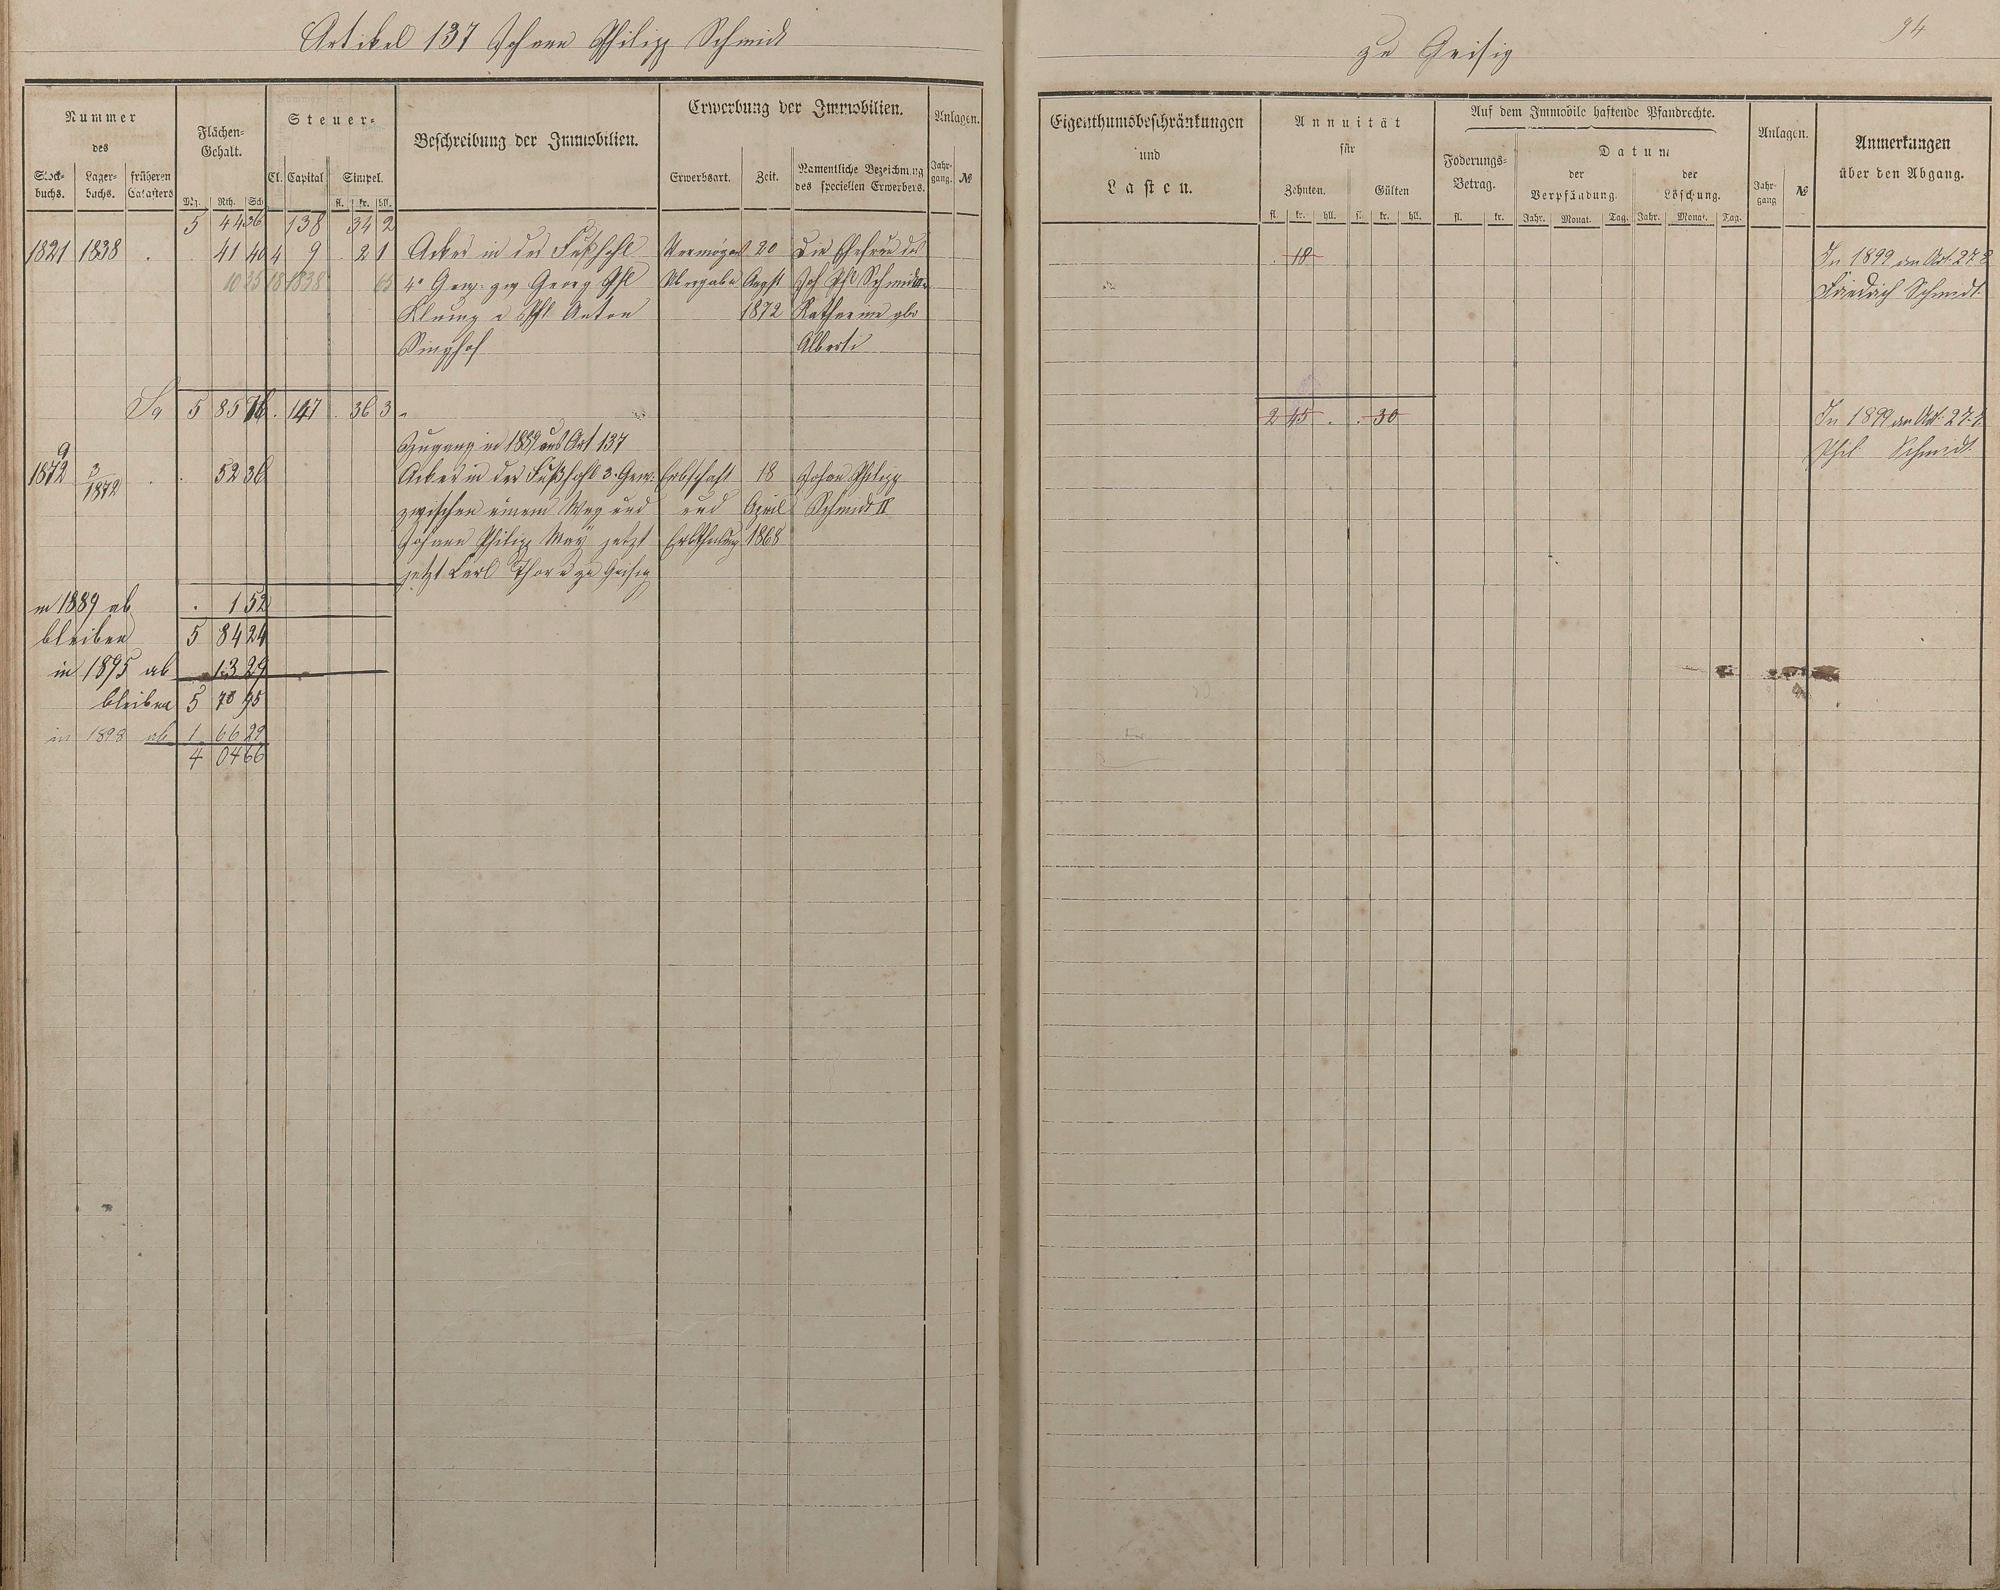 Artikel 137 Johann Philipp Schmidt
Nummer
des
Stock-
buchs.
Lager-
buchs.
früheren
Catasters
Flächen-
Gehalt.
Mg. Rth. Sch
Steuer-
Cl. Capital Simpel.
fl. kr. hll.
Beschreibung der Immobilien.
Erwerbung der Immobilien.
Erwerbsart. Zeit.
Namentliche Bezeichnung
des speciellen Erwerbers.
Anlagen.
Jahr-
gang. №
5 44 36 138 34 2
1821 1838 . . 41 40 4 9 . 2 1 Acker in der Fußhohl Vermögens 20 Die Ehefrau des
10 35 18 1838 65 4r Gew: zw Georg Phl Übergabe Augst Joh Phl Schmidt
Klump u Phl. Anton 1872 Katharine gb
Singhof Alberti
Sa 5 85 76 . 147 . 36 3
Zugang in 1889 aus Art 137
1872 3/1872 . . 52 36 Acker in der Fußhohl 3. Gew: Erbschaft 18 Johan Philipp
zwischen einem Weg und und April Schmidt II
Johann Philipp May jetzt Erbtheilung 1868
jetzt Carl Thorn zu Geisig
in 1889 ab . 1 52
bleiben 5 84 24
in 1895 ab 13 29
bleiben 5 70 95
in 1898 ab 1 66 29
4 04 66
zu Geisig
94
Eigenthumsbeschränkungen
und
Lasten.
Annuität
für
Zehnten. Gülten
fl. kr. hll. fl. kr. hll.
Auf dem Immobile haftende Pfandrechte.
Foderungs-
Betrag.
fl. kr.
Datum
der
Verpfändung.
Jahr. Monat. Tag.
der
Löschung.
Jahr. Monat. Tag.
Anlagen.
Jahr-
gang №
Anmerkungen
über den Abgang.
. 18 In 1899 an Art. 278
Friedrich Schmidt.
2 45 . . 30 In 1899 an Art. 27
Phil Schmidt.